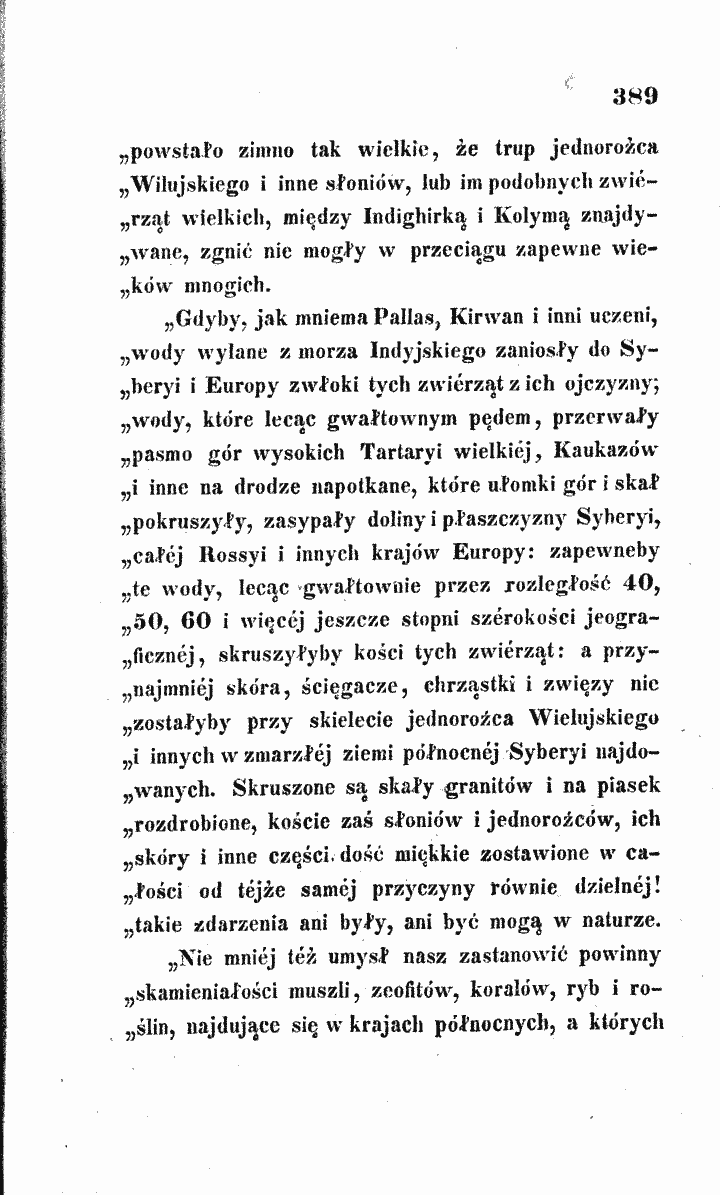 389
„powstało zimno tak wielkie, że trup jednorożca
„Wilujskiego i inne słoniów, lub im podobnych zwié-
„rząt wielkich, między Indighirką i Kolymą znajdy-
„wane, zgnić nie mogły w przeciągu zapewne wie-
„ków mnogich.
„Gdyby, jak mniema Pallas, Kirwan i inni uczeni,
„wody wylane z morza Indyjskiego zaniosły do Sy-
„beryi i Europy zwłoki tych zwiérząt z ich ojczyzny;
„wody, które lecąc gwałtownym pędem, przerwały
„pasmo gór wysokich Tartaryi wielkiéj, Kaukazów
„i inne na drodze napotkane, które ułomki gór i skał
„pokruszyły, zasypały doliny i płaszczyzny Syberyi,
„całéj Rossyi i innych krajów Europy: zapewneby
„te wody, lecąc gwałtownie przez rozległość 40,
„50, 60 i więcéj jeszcze stopni szérokości jeogra-
„ficznéj, skruszyłyby kości tych zwiérząt: a przy-
„najmniéj skóra, ścięgacze, chrząstki i zwięzy nie
„zostałyby przy skielecie jednorożca Wielujskiego
„i innych w zmarzłéj ziemi północnéj Syberyi najdo-
„wanych. Skruszone są skały granitów i na piasek
„rozdrobione, koście zaś słoniów i jednorożców, ich
„skóry i inne części dość miękkie zostawione w ca-
„łości od téjże saméj przyczyny równie dzielnéj!
„takie zdarzenia ani były, ani być mogą w naturze.
„Nie mniéj téż umysł nasz zastanowić powinny
„skamieniałości muszli, zeofitów, koralów, ryb i ro-
„ślin, najdujące się w krajach północnych, a których